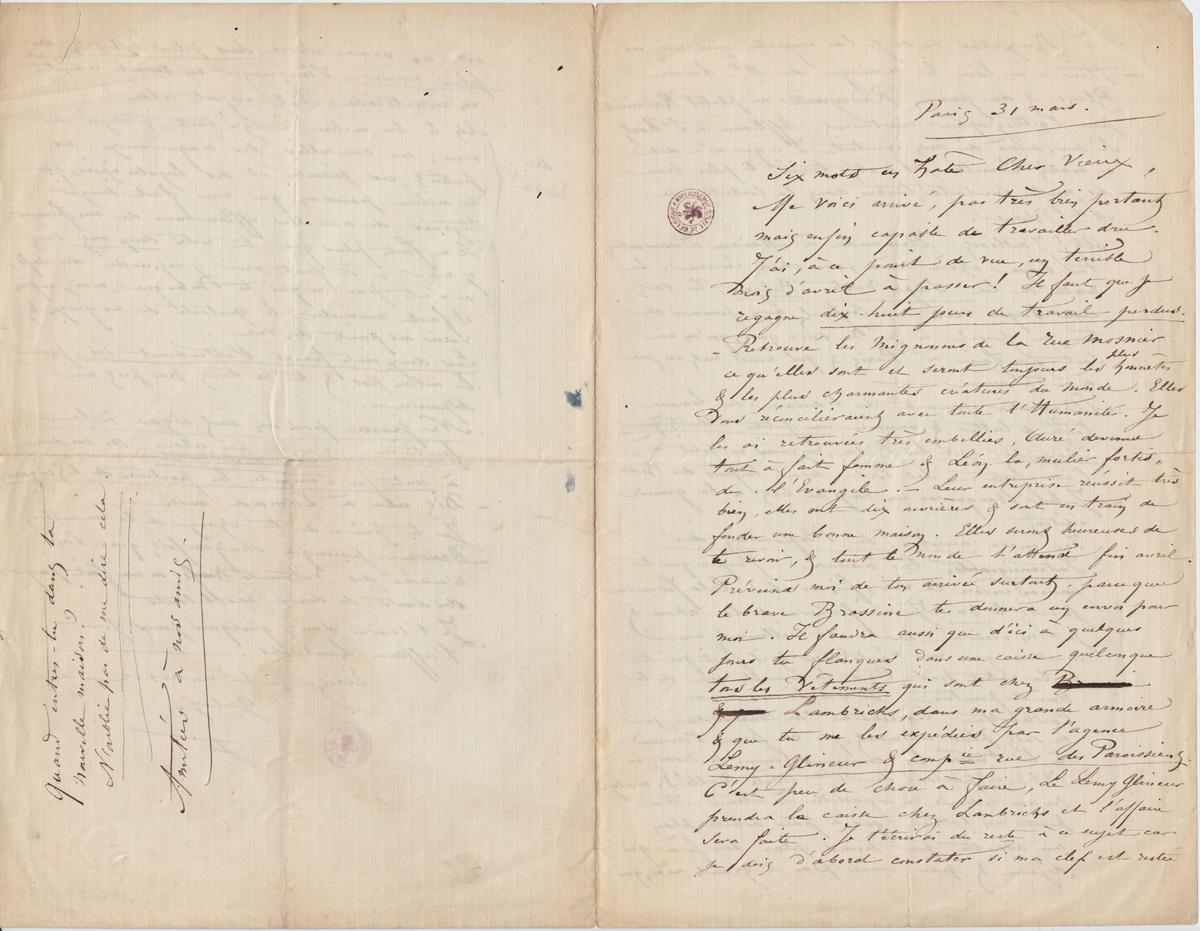 Paris 31 mars.
Six mots en hâte Cher Vieux,
Me voici arrivé, pas très bien portant
mais enfin capable de travailler dru.
J'ai, à ce point de vue, un terrible
mois d'avril à passer ! Il faut que je
regagne dix-huit jours de travail perdus.
- Retrouvé les mignonnes de la rue Mosnier
ce qu'elles sont et seront toujours les plus honnêtes
& les plus charmantes créatures du monde. Elles
vous réconcilieraient avec toute l'Humanité. Je
les ai retrouvées très embellies, Auré devenue
tout à fait femme & Léon la "mulier fortis"
de l'Evangile. - Leur entreprise réussit très
bien, elles ont dix ouvrières & sont en train de
fonder une bonne maison. Elles seront heureuses de
te revoir, & tout le monde t'attend fin avril
Préviens moi de ton arrivée surtout, parce que
le brave Brassine te donnera un envoi pour
moi. Il faudra aussi que d'ici à quelques
jours tu flanques dans une caisse quelconque
tous les Vêtements qui sont chez
Lambrichs, dans ma grande armoire
& que tu me les expédies par l'agence
Lemy-Glineur & comp ie rue des Paroissiens.
C'est peu de chose à faire, Le Lemy Glineur
prendra la caisse chez Lambrichs et l'affaire
sera faite. Je t'écrirai du reste à ce sujet car
je dois d'abord constater si ma clef est restée
Quand entres-tu dans ta
nouvelle maison?
N'oublie pas de me dire cela.
Amitiés à nos amis.